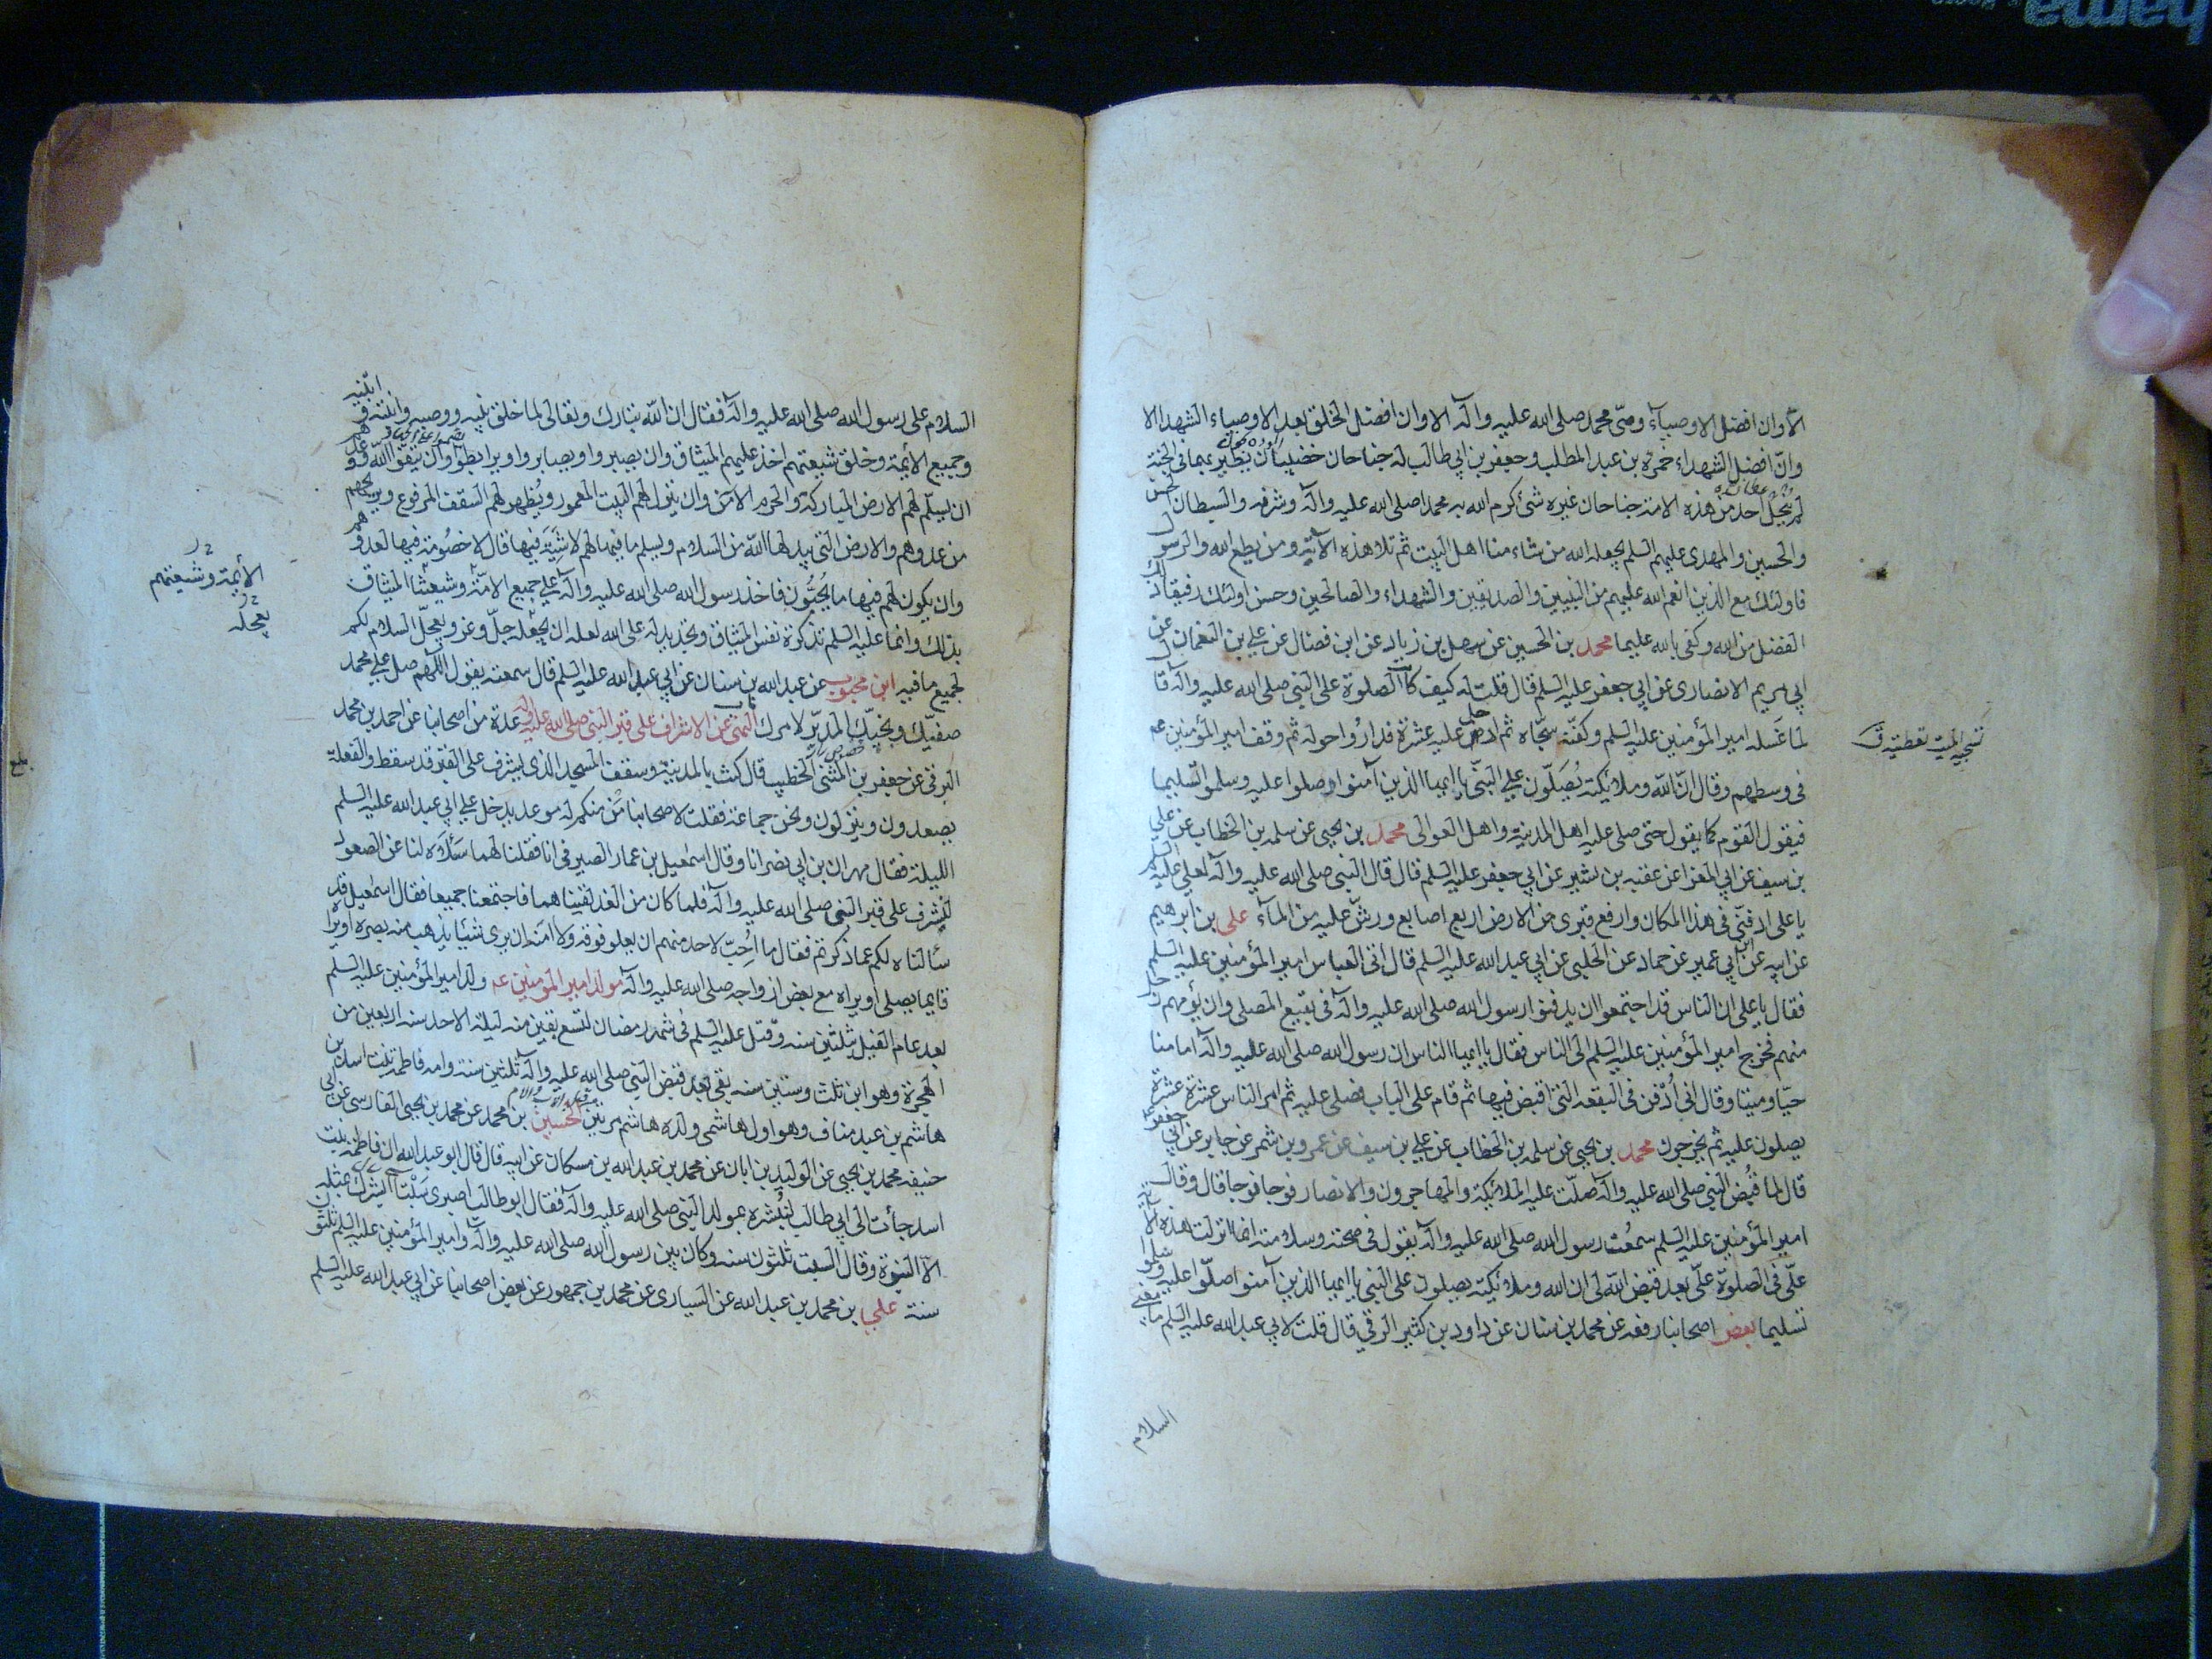 الا وان افضل الاوصياء وصى محمد صلى الله عليه وآله الا وان افضل الخلق بعد الاوصياء الشهدا الا
وان افضل الشهداء حمزة بن عبد المطلب وجعفر بن ابي طالب له جناحان خضيبان يطير بهما في الجنة
لم يُنحل احد من هذه الامة جناحان غيره شئ كرم الله به محمدا صلى الله عليه وآله وشرفه والسبطان الحسن
والحسين والمهدى عليهم السلم يجعله الله من شاء منا اهل البيت ثم تلا هذه الآية ومن يطع الله والرسول
فاولئك مع الذين انعم الله عليهم من النبيين والصديقين والشهداء والصالحين وحسن اولئك رفيقا ذلك
الفضل من الله وكفى بالله عليما محمد بن الحسين عن سهل بن زياد عن ابن فضال عن علي بن النعمان عن
ابي مريم الانصارى عن ابي جعفر عليه السلم قال قلت له كيف كانت الصلوة على النبي صلى الله عليه وآله قال
لما غسله امير المؤمنين عليه السلم وكفنه سجّاه ثم ادخل عليه عشرة فداروا حوله ثم وقف امير المؤمنين عم
تسجية الميت تغطيته ق
في وسطهم وقال ان الله وملائكته يُصَلّون على النبي يا ايها الذين آمنوا صلوا عليه وسلموا تسليما
فيقول القوم كما يقول حتى صلى عليه اهل المدينة واهل العوالى محمد بن يحيى عن سلمه بن الخطاب عن علي
بن سيف عن ابي المغرا عن عقبه بن بشير عن ابي جعفر عليه السلم قال قال النبي صلى الله عليه وآله لعلي عليه السلم
يا على ادفنّي في هذا المكان وارفع قبرى من الارض اربع اصابع ورشّ عليه من المآء على بن ابرهيم
عن ابيه عن ابن ابي عمير عن حماد عن الحلبى عن ابي عبد الله عليه السلم قال اتى العباس امير المؤمنين عليه السلم
فقال يا على ان الناس قد اجتمعوا ان يدفنوا رسول الله صلى الله عليه وآله في بقيع المصلى وان يؤمهم رجل
منهم فخرج امير المؤمنين عليه السلم الى الناس فقال يا ايها الناس ان رسول الله صلى الله عليه وآله امامنا
حيّا وميتا وقال اني اُدْفن في البقعه التي اقبض فيها ثم قام على الباب فصلى عليه ثم امر الناس عشرة عشرة
يصلون عليه ثم يخرجون محمد بن يحيى عن سلمه بن الخطاب عن علي بن سيف عن عمرو بن شمر عن جابر عن ابي جعفر عم
قال لما قُبض النبي صلى الله عليه وآله صلّت عليه الملائكة والمهاجرون والانصار فوجا فوجا قال وقال
امير المؤمنين عليه السلم سمعت رسول الله صلى الله عليه وآله يقول في صحته وسلامته انما انزلت هذه الآية
علىّ في الصلوة علىّ بعد قبض الله لى ان الله وملائكته يصلون على النبي يا ايها الذين آمنوا صلّوا عليه وسلموا
تسليما بعض اصحابنا رفعه عن محمد بن سنان عن داود بن كثير الرقي قال قلت لابي عبد الله عليه السلم ما معنى
السلام
السلام على رسول الله صلى الله عليه وآله فقال ان الله تبارك وتعالى لما خلق نبيه ووصيه وابنته وابنيه
وجميع الأئمة وخلق شيعتهم اخذ عليهم الميثاق وان يصبروا ويصابروا ويرابطوا وان يتقوا الله ووعدهم
ان يسلّم لهم الارض المباركة والحرم الامن وان ينزل لهم البيت المعمور ويُظهر لهم السقف المرفوع ويريحهم
من عدوهم والارض التى يبدلها الله من السلام ويسلم ما فيها لهم لا شِيَةَ فيها قال لا خصُومة فيها لعدوهم
وان يكون لهم فيها ما يُحبُّون فاخذ رسول الله صلى الله عليه وآله على جميع الامّة وشيعتنا الميثاق
الأئمة وشيعتهم
بذلك وانما عليه السلم تذكرة نفس الميثاق وتجديد له على الله لعله ان يعجّله جلّ وعز ويعجلّ السلام لكم
يعجله
لجميع ما فيه ابن محبوب عن عبد الله بن سنان عن ابي عبد الله عليه السلم قال سمعته يقول اللهم صل على محمد
صفيّك ونجيّك المدبّر لامرك باب النهى عن الاشراف على قبر النبى صلى الله عليه وآله عدة من اصحابنا عن احمد بن محمد
البرقى عن جعفر بن المُثنى الخطيب قال كنت بالمدينة وسقف المسجد الذى يشرف على القبر قد سقط والفعلة
يصعدون وينزلون ونحن جماعة فقلت لاصحابنا مَن منكم له موعد يدخل على ابي عبد الله عليه السلم
الليلة فقال مهران بن ابي نصر انا وقال اسمعيل بن عمار الصيرفى انا فقلنا لهما سَئَلاه لنا عن الصعود
لنشرف على قبر النبى صلى الله عليه وآله فلما كان من الغد لقيناهما فاجتمعنا جميعا فقال اسمعيل قد
سألناه لكم عما ذكرتم فقال ما اُحِبّ لاحد منهم ان يعلو فوقه ولا امَنه ان يرى شيئا يذهب منه بصره او يراه
قايما يصلى او يراه مع بعض ازواجه صلى الله عليه وآله مولد امير المؤمنين عم ولد امير المؤمنين عليه السلم
بعد عام الفيل بثلثين سنه وقتل عليه السلم في شهر رمضان لتسع بقين منه ليلة الاحد سنه اربعين من
الهجرة وهو ابن ثلث وستين سنه بقى بعد قبض النبي صلى الله عليه وآله ثلثين سنة وامه فاطمة بنت اسد بن
هاشم بن عبد مناف وهو اول هاشمى ولده هاشم مرتين الحسين بن محمد عن محمد بن يحيى الفارسى عن ابي
حنيفه محمد بن يحيى عن الوليد بن ابان عن محمد بن عبد الله بن مسكان عن ابيه قال قال ابو عبد الله ان فاطمة بنت
اسد جاءت الى ابي طالب لتُبشره بمولد النبي صلى الله عليه وآله فقال ابو طالب اصبرى سَبْتا ابشرك بمثله
الا النبوة وقال السبت ثلثون سنه وكان بين رسول الله صلى الله عليه وآله وامير المؤمنين عليه السلم ثلثون
سنة علي بن محمد بن عبد الله عن السيارى عن محمد بن جمهور عن بعض اصحابنا عن ابي عبد الله عليه السلم
hama